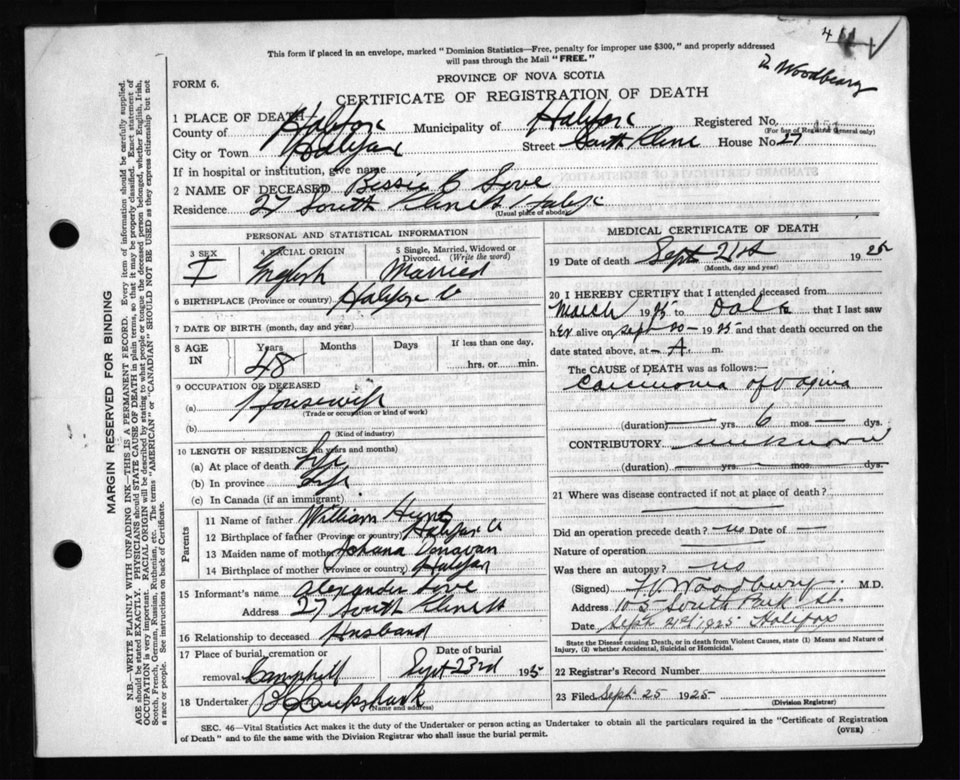 This form if placed in an envelope, marked "Dominion Statistics—Free, penalty for improper use $300," and properly addressed
will pass through the Mail "FREE."
Dr Woodbury
PROVINCE OF NOVA SCOTIA
FORM 6.
CERTIFICATE OF REGISTRATION OF DEATH
1 PLACE OF DEATH
County of Halifax Municipality of Halifax Registered No.
(For use of Registrar General only)
City or Town Halifax Street South Kline House No. 27
If in hospital or institution, give name
2 NAME OF DECEASED Bessie C
Residence 27 South Kline St Halifx
(Usual place of abode)
PERSONAL AND STATISTICAL INFORMATION
3 SEX 4 RACIAL ORIGIN 5 Single, Married, Widowed or Divorced. (Write the word)
F English Married
6 BIRTHPLACE (Province or country) Halifax
7 DATE OF BIRTH (month, day and year)
8 AGE IN Years Months Days If less than one day,
48 hrs. or min.
9 OCCUPATION OF DECEASED
(a) Housewife
(Trade or occupation or kind of work)
(b)
(Kind of industry)
10 LENGTH OF RESIDENCE (in years and months)
(a) At place of death Life
(b) In province Life
(c) In Canada (if an immigrant)
Parents
11 Name of father William Hunt
12 Birthplace of father (Province or country) Halifax
13 Maiden name of mother Johana Donavan
14 Birthplace of mother (Province or country) Halifax
15 Informant's name Alexander
Address 27 South Kline St
16 Relationship to deceased Husband
17 Place of burial, cremation or removal Date of burial
Camphill Sept 23rd 1925
18 Undertaker
(Name and address)
MEDICAL CERTIFICATE OF DEATH
19 Date of death Sept 21st 1925
(Month, day and year)
20 I HEREBY CERTIFY that I attended deceased from
March 1925 to Date that I last saw
her alive on Sept 20 - 1925 and that death occurred on
date stated above, at - A. m.
The CAUSE of DEATH was as follows:—
Carcinoma of Vagina
(duration) — yrs. 6 mos. — dys.
CONTRIBUTORY unknown
(duration) — yrs. mos. dys.
21 Where was disease contracted if not at place of death?
Did an operation precede death? no Date of —
Nature of operation
Was there an autopsy? no
(Signed) Woodbury M.D.
Address 105 South Park St.
Date Sept 21st 1925 Halifax
State the Disease causing Death, or in death from Violent Causes, state (1) Means and Nature of
Injury, (2) whether Accidental, Suicidal or Homicidal.
22 Registrar's Record Number
23 Filed Sept 25 1925
(Division Registrar)
SEC. 46—Vital Statistics Act makes it the duty of the Undertaker or person acting as Undertaker to obtain all the particulars required in the "Certificate of Registration
of Death" and to file the same with the Division Registrar who shall issue the burial permit.
(OVER)
MARGIN RESERVED FOR BINDING
N.B.—WRITE PLAINLY WITH UNFADING INK—THIS IS A PERMANENT RECORD. Every item of information should be carefully supplied.
AGE should be stated EXACTLY. PHYSICIANS should STATE CAUSE OF DEATH in plain terms, so that it may be properly classified. Exact statement of
OCCUPATION is very important. RACIAL ORIGIN will be described by stating to what people or tongue the deceased person belonged, whether English, Irish,
Scotch, French, German, Russian, Ruthenian, etc. The terms "AMERICAN" or "CANADIAN" SHOULD NOT BE USED as they express citizenship but not
a race or people. See instructions on back of Certificate.